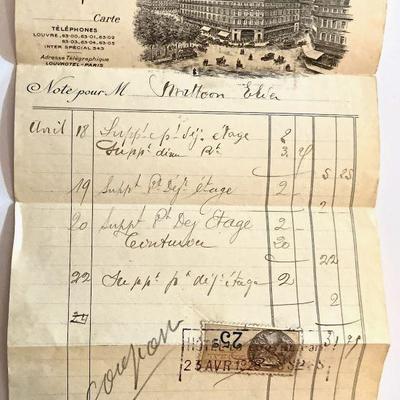 Carte
TÉLÉPHONES
LOUVRE, 63-00, 63-01, 63-02
63-03, 63-04, 63-05
INTER SPÉCIAL 343
Adresse Télégraphique
LOUVHOTEL-PARIS
Note pour M
Avril 18 Suppt pt déj. étage 2
Suppt diner 3.25
5 25
19 Suppt Pt Déjt étage 2
2
20 Suppt Pt Dej Etage 2
20
22
22 Suppt pt déjt étage 2
2
24
31 25
25
HOTEL
23 AVR 192
coupon